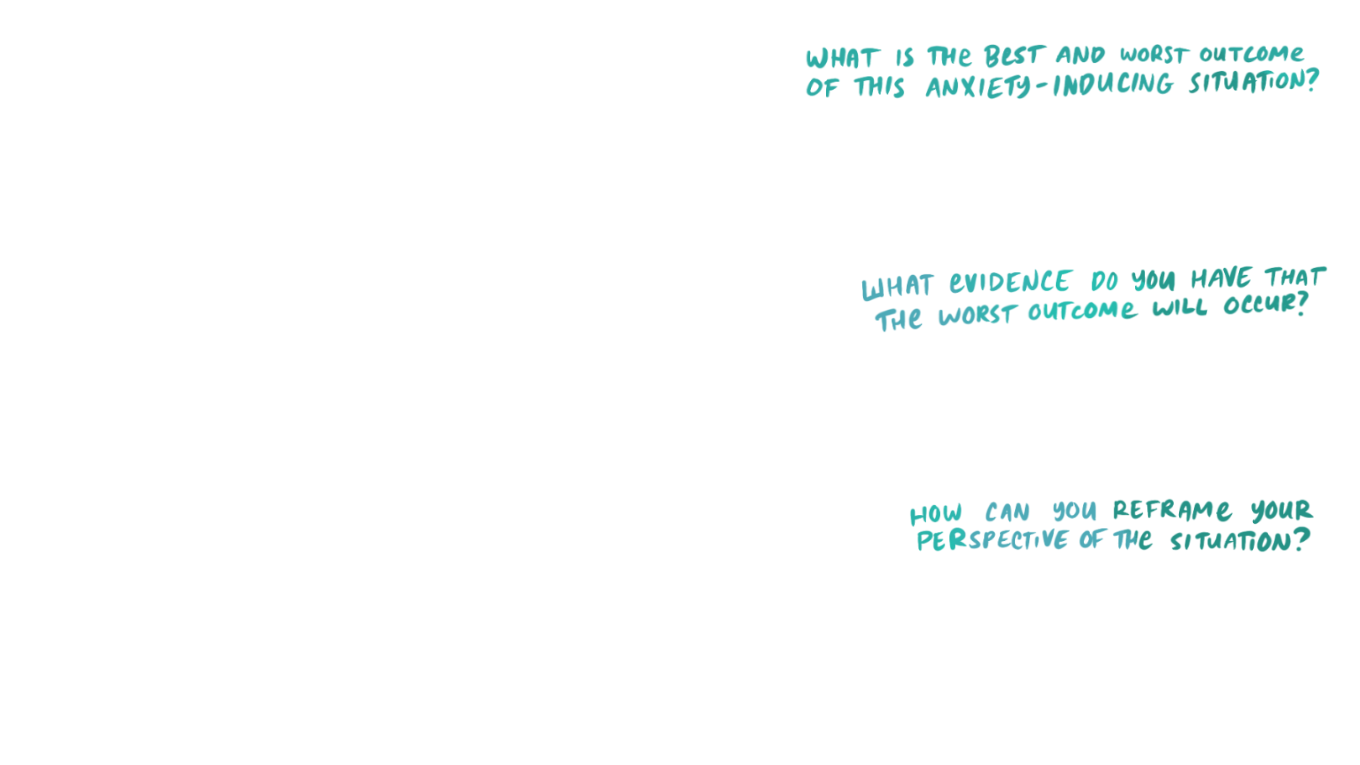 WHAT IS THE BEST AND WORST OUTCOME
OF THIS ANXIETY-INDUCING SITUATION?
WHAT EVIDENCE DO YOU HAVE THAT
THE WORST OUTCOME WILL OCCUR?
HOW CAN YOU REFRAME YOUR
PERSPECTIVE OF THE SITUATION?